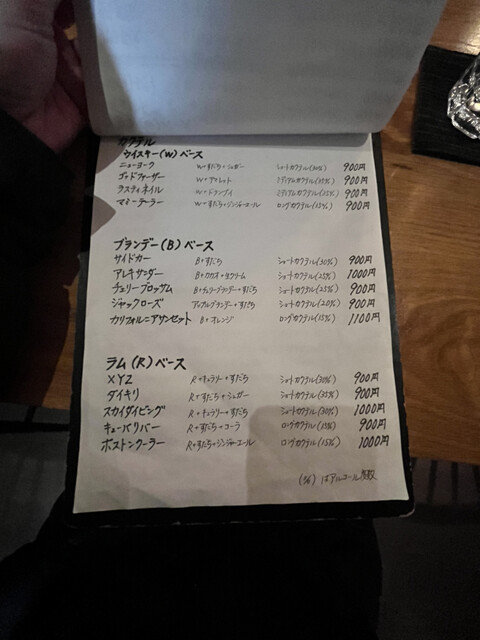 カクテル
ウイスキー(W)ベース
ニューヨーク W+すだち+シュガー ショートカクテル(30%) 900円
ゴッドファーザー W+アマレット ミディアムカクテル(35%) 900円
ラスティネイル W+ドランブイ ミディアムカクテル(35%) 900円
マミーテーラー W+すだち+ジンジャーエール ロングカクテル(15%) 900円
ブランデー(B)ベース
サイドカー B+すだち ショートカクテル(30%) 900円
アレキサンダー B+カカオ+生クリーム ショートカクテル(25%) 1000円
チェリーブロッサム B+チェリーブランデー+すだち ショートカクテル(25%) 900円
ジャックローズ アップルブランデー+すだち ショートカクテル(20%) 900円
カリフォルニアサンセット B+オレンジ ロングカクテル(15%) 1100円
ラム(R)ベース
XYZ R+キュラソー+すだち ショートカクテル(30%) 900円
ダイキリ R+すだち+シュガー ショートカクテル(35%) 900円
スカイダイビング R+キュラソー+すだち ショートカクテル(30%) 1000円
キューバリバー R+すだち+コーラ ロングカクテル(15%) 900円
ボストンクーラー R+すだち+ジンジャーエール ロングカクテル(15%) 1000円
(%)はアルコール度数